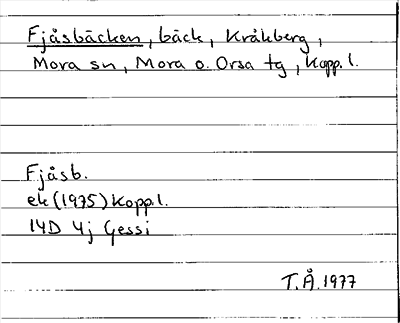 Fjåsbäcken, bäck, Kråkberg,
Mora sn, Mora o. Orsa tg, Kopp. l.
Fjåsb.
ek (1975) Kopp l.
14D 4j Gessi
T.Å. 1977